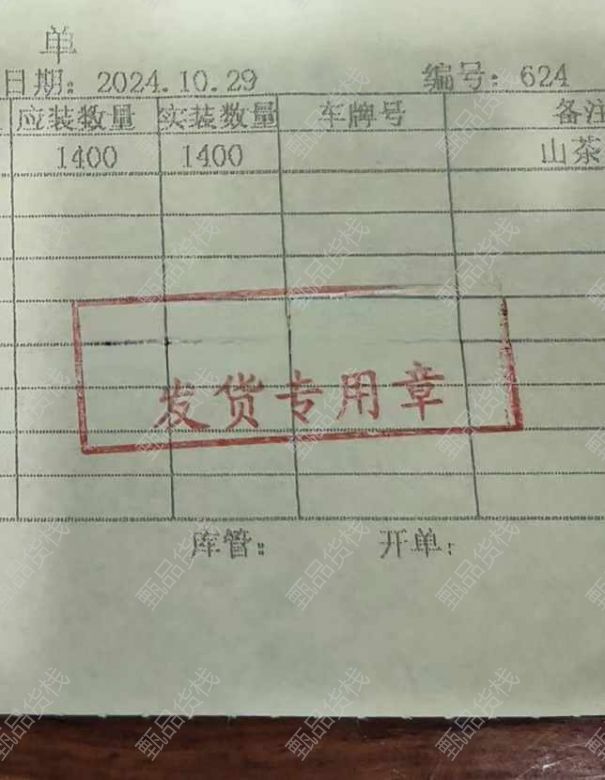 单
日期: 2024.10.29 编号: 624
应装数量 实装数量 车牌号 备注
1400 1400 山茶
发货专用章
库管: 开单:
甄品货栈